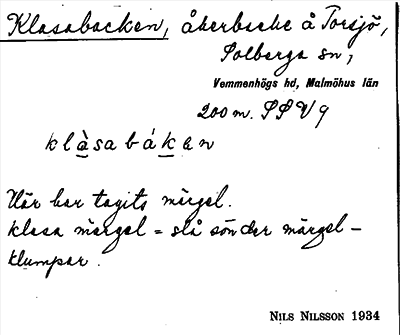 Klasabacken, åkerbacke å Torsjö,
Solberga sn,
Vemmenhögs hd, Malmöhus län
200 m. SSV 9
klàsabákan
Här har tagits märgel.
klasa märgel = slå sönder märgel-
klumpar.
NILS NILSSON 1934